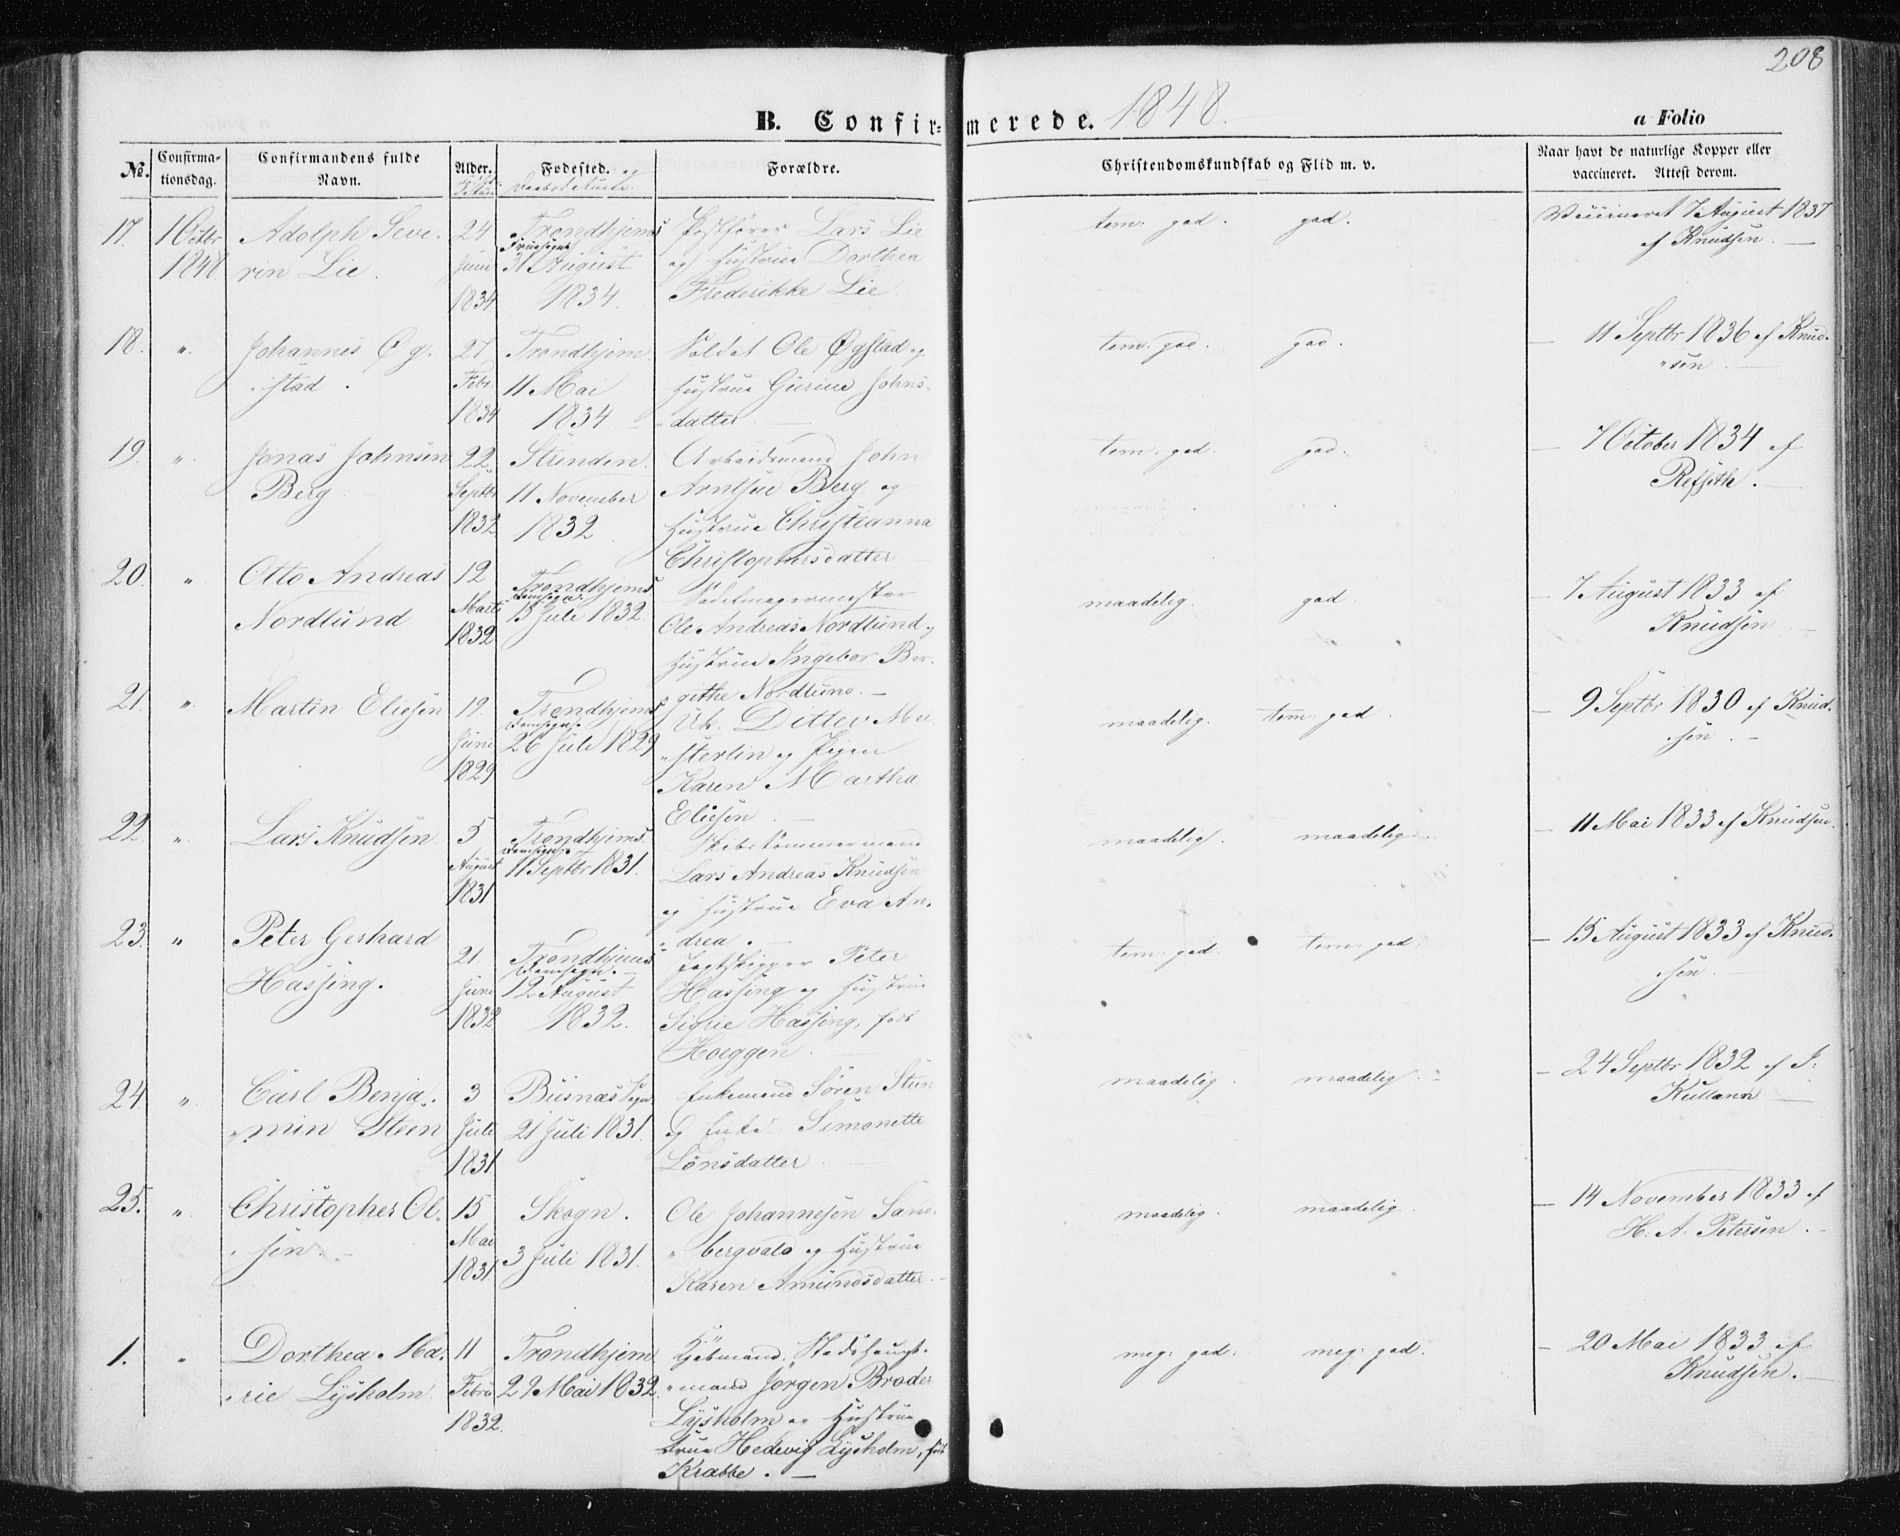 208
B. Confirmerede. 1848
a Folio
No. Confirmationsdag. Confirmandens fulde Navn. Alder. Fødested. og Daabsdatum. Forældre. Christendomskundskab og Flid m. v. Naar havt de naturlige Kopper eller vaccineret. Attest derom.
17. 1 Octbr Adolph Seve- 24 Trondhjems Lars Lie tem: god. god. Vaccineret 7 August 1837
1848 rin Lie. Juni 31 August og Hustrue Dorthea af Knudsen.
1834 1834. Frederikke Lie
18. " Johannes Øg- 27 Trondhjem Soldat Ole Øgstad og tem: god. god. — 11 Septbr 1836 af Knud-
stad. Febr. 11 Mai Hustrue Gurine Johns- sen.
1834 1834. datter
19. " Jonas Johnsen 22 Strinden. Arbeidsmand John tem: god. god. — 7 October 1834 af
Berg. Septbr 11 November Arntsen Berg og
1832 1832. Hustrue Christianna
Christophersdatter
20. " Otto Andreas 12 Trondhjems Sadelmagermester maadelig. god. — 7 August 1833 af
Nordlund Marts Domsogn. 15 Juli 1832. Ole Andreas Nordlund og Knudsen
1832 Hustrue Ingebor Ber-
githe Nordlund. —
21. " Martin Eliesen 19. Trondhjems Ditlev Me- maadelig. tem: god. — 9 Septbr 1830 af Knud-
Juni Domsogn. 26 Juli 1829 sterlin og Pigen sen. —
1829 Karen Martha
Eliesen
22. " Lars Knudsen. 5 Trondhjems maadelig. maadelig. — 11 Mai 1833 af Knudsen.
August Domsogn. 11 Septbr 1831. Lars Andreas Knudsen
1831 og Hustrue Eva An-
drea. —
23. " Peter Gerhard 21. Trondhjems Jagtskipper Peter tem: god. tem: god. — 15 August 1833 af Knud-
Hassing. Juni Domsogn. 12 August Hassing og Hustrue sen.
1832 1832. Sigrie Hassing, født
Hoeggen
24. " Carl Benja- 3 Busnæs Sogn Enkemand Søren Steen maadelig. maadelig. — 24 Septbr 1832 af J.
min Steen Juli 21 Juli 1831. og Enke Simonette
1831 Lönsdatter
25. " Christopher Ol- 15 Skogn. Ole Johannesen Sand- maadelig. maadelig. — 14 November 1833 af
sen. Mai 3 Juli 1831. og Hustrue H. A. Petersen.
1831 Karen Amundsdatter. —
1. " Dorthea Ma- 11 Trondhjem Kjøbmand, Stadshaupt- meg: god. meg: god. — 20 Mai 1833 af
rie Lysholm. Febru 29 Mai 1832. mand Jørgen Broder Knudsen.
1832. Lysholm og Hustrue
Hedevig Lysholm, født
Krabbe. —